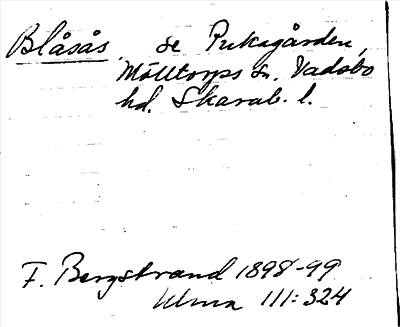 Blåsås, se Pukagården,
Mölltorps sn. Vadsbo
hd. Skarab. l.
F. Bergstrand 1898-99
Ulma 111:324